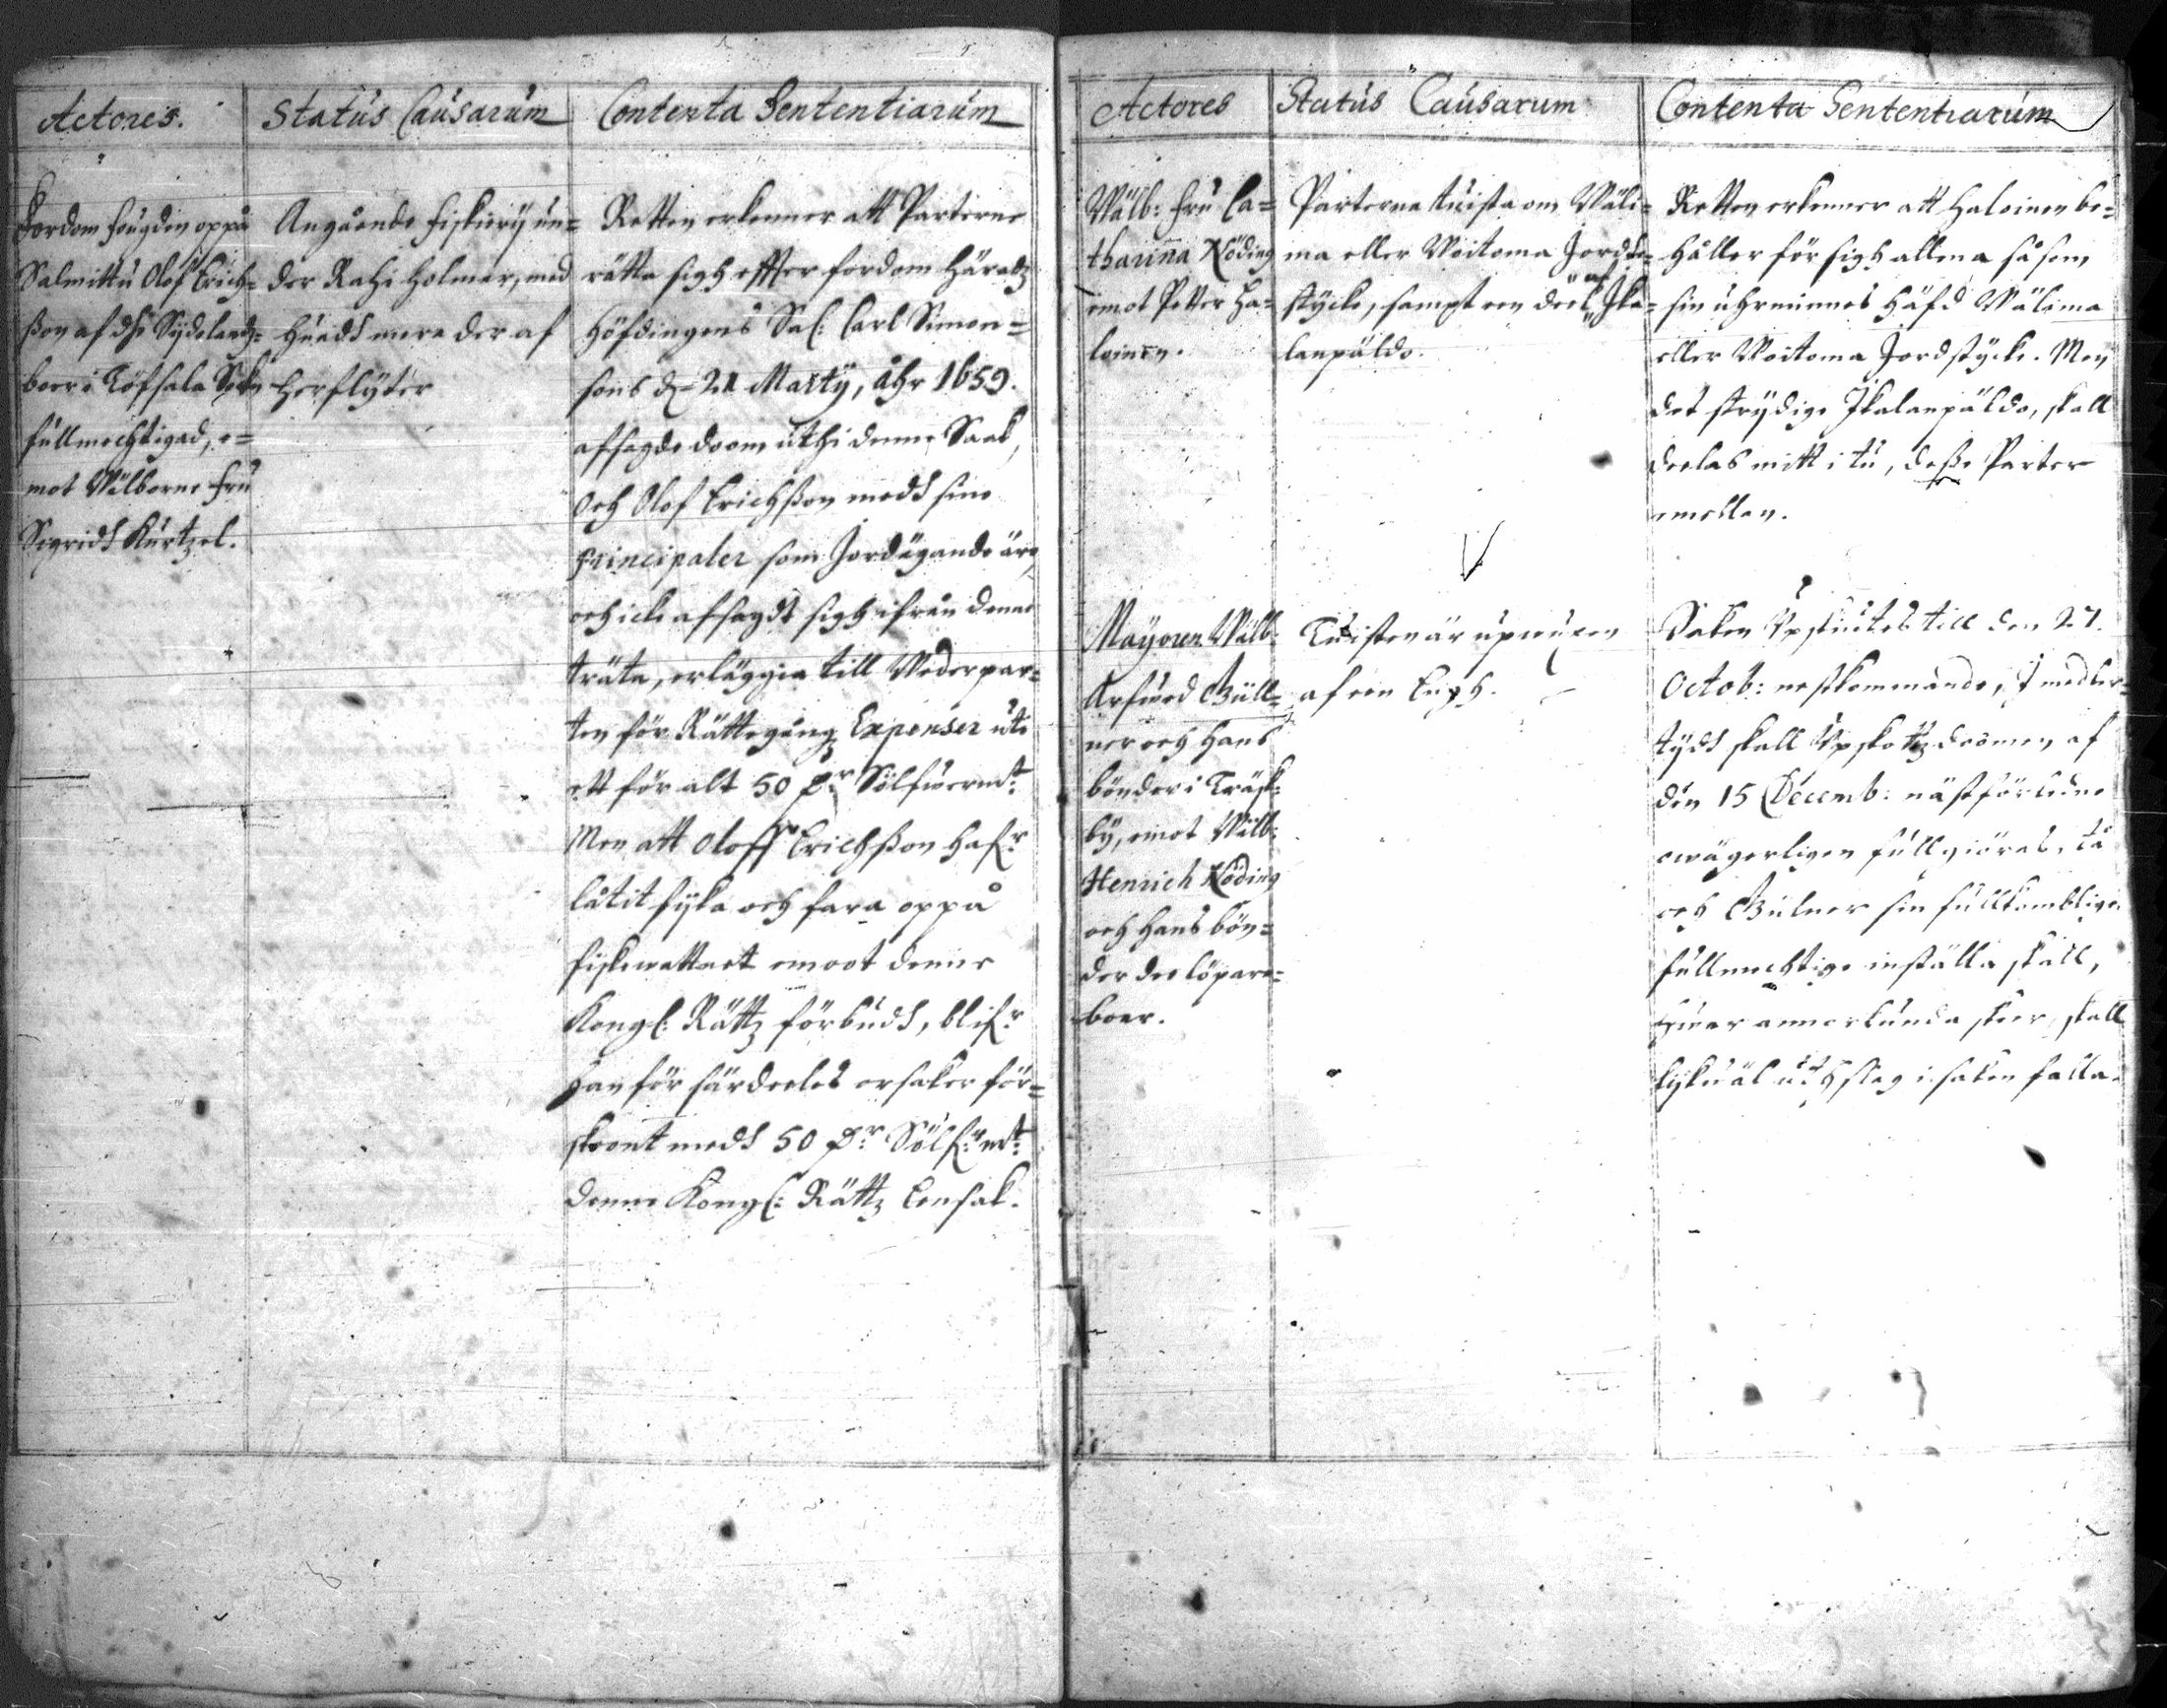 Actores.
Status Causarum
Contenta Sententiarum
Fordom fougden oppå
Salmittu Olof Erich=
ßon af dhe Sydelandz=
boer i Töfsala Sokn
fullmechtigad, e=
mot Wälborne Fru
Sigridh Kurtzel.
Angående fiskierij un=
der Rahi holmar, med
huadh mera der af
herflyter
Retten erkenner att Parterne
rätta sigh effter fordom Häradz
Höfdingens Sal: Carl Simon=
sons d. 21 Martÿ, åhr 1659.
afsagde doom uthi denne Saak,
Och Olof Erichßon medh sine
Principaler som Jordägande äre,
och icke afsagdt sigh ifrån denne
träta, erläggia till Wederpar=
ten för Rättegång Expenser uti
ett för alt 50 Dr Sölfwermt:
Men att Oloff Erichßon hafr
låtit fiska och fara oppå
fiskewattnet emoot denne
Kongl: Rättz förbudh, blifr
han för särdeeles orsaker för=
skoont medh 50 Dr Sölf:rmt:
denne Kongl: Rättz Ensak.
Actores
Status Causarum
Contenta Sententiarum
Wälb: Fru Ca=
tharina Nöding
emot Petter Ha=
loinen.
Parterna tuista om Wäli=
ma eller Woitoma Jorde=
stycke, sampt een deel af Ika=
lanpäldo.
Retten erkenner att Haloinen be=
håller för sigh allena såsom
sin uhrminnes häfd Wälima
eller Woitoma Jordstycke. Men
det strydige Ikalanpäldo, skall
deelas mitt i tu, deße Parter
emellan.
Mayoren Wälb.
Arfwed Güll=
ner och hans
bönder i Träsk=
by, emot Wälb:
Henrich Nöding
och hans bön=
der dee löpare=
boer.
Tuisten är upwuxen
af een Engh.
Saken Upskiutes till den 27.
Octob: nestkommande, I medler=
tydh skall Upskotzdoomen af
den 15 Decemb: nästförledne
owägerligen fullgiöras, tå
och Gülner sin fullkomblige
fullmechtige inställa skall,
huar annorlunda skeer, skall
lykwäl uthslag i saken falla.